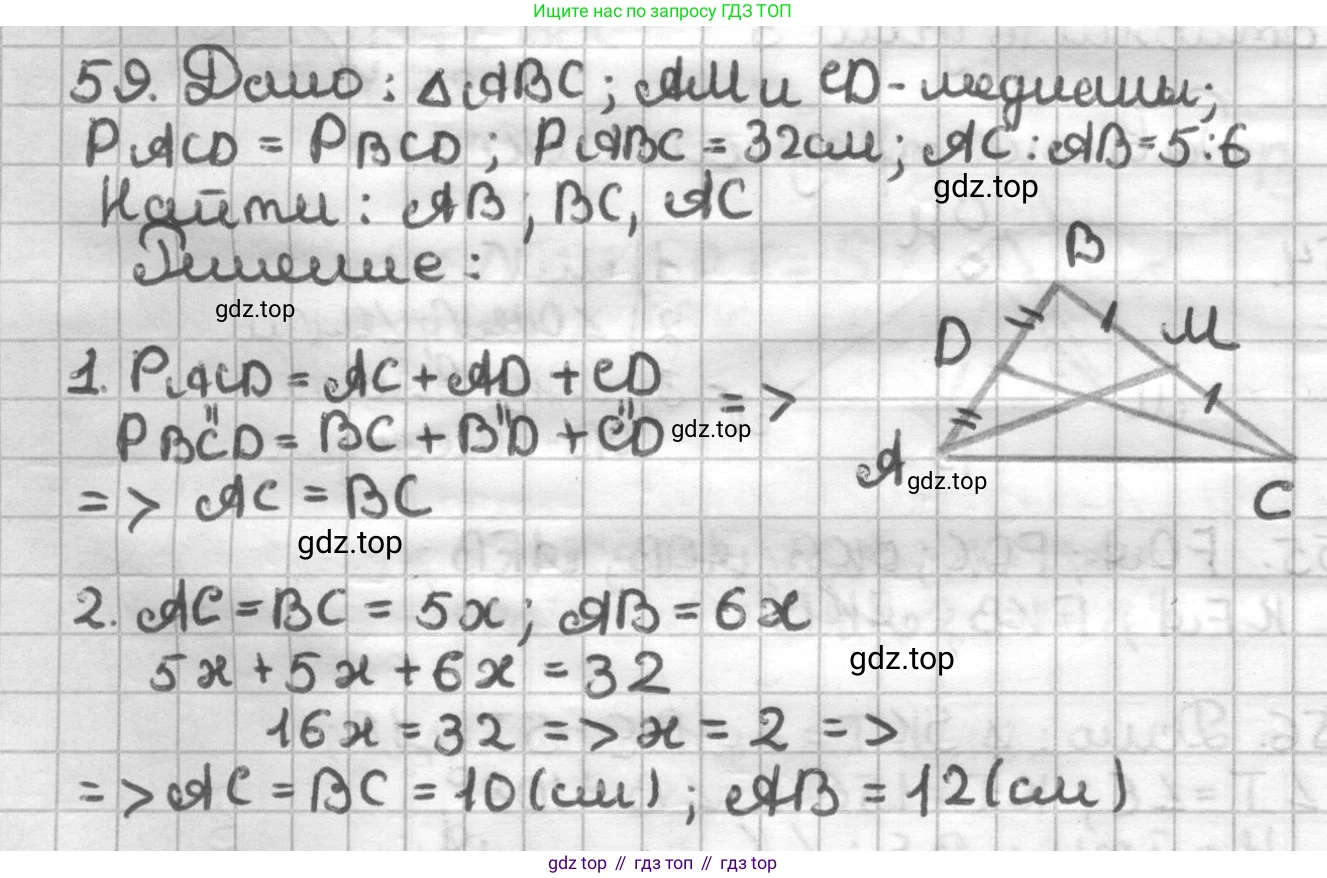 Ищите нас по запросу ГДЗ ТОП
59. Дано: △ABC; AM и CD - медианы;
PACD = PBCD; PABC = 32см; AC:AB=5:6
gdz.top
Найти: AB; BC, AC
Решение:
gdz.top
B
D
M
A
gdz.top
C
1. PACD = AC + AD + CD
" " "
PBCD = BC + BD + CD
=>
gdz.top
=> AC = BC
gdz.top
2. AC = BC = 5x; AB = 6x
5x + 5x + 6x = 32
gdz.top
16x = 32 => x = 2 =>
=> AC = BC = 10(см); AB = 12(см)
gdz top // гдз топ // гдз top